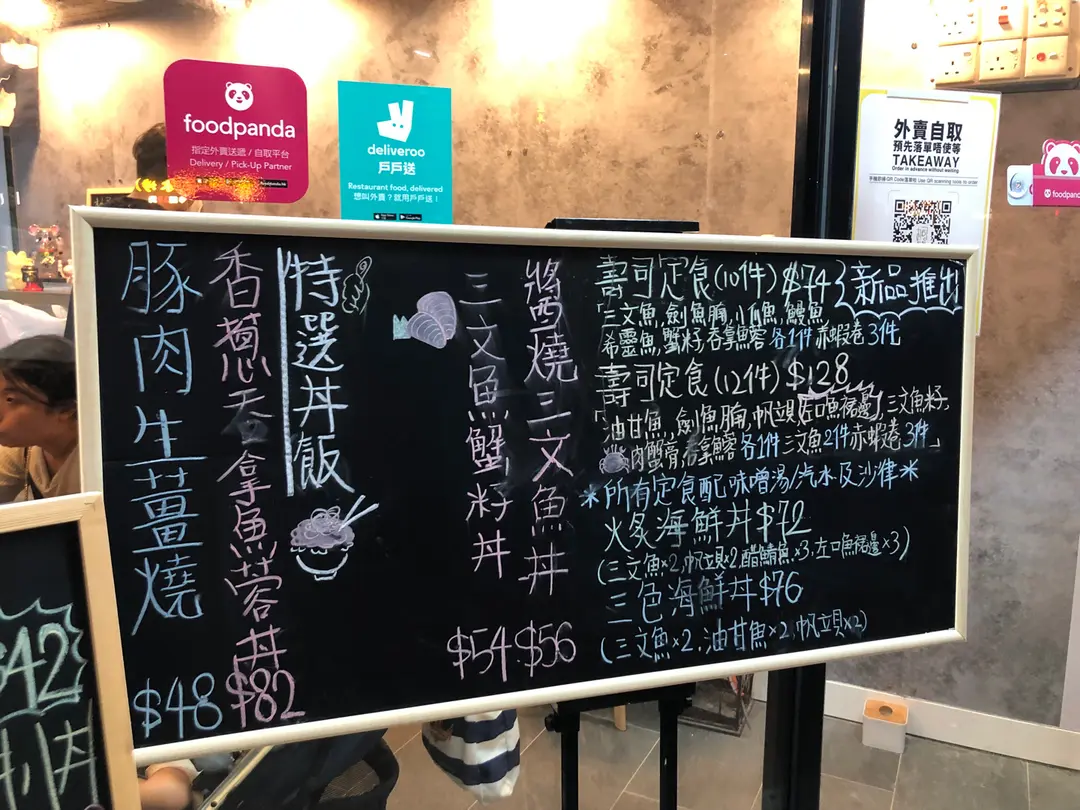 foodpanda
指定外賣送遞 / 自取平台
Delivery / Pick-Up Partner
deliveroo
戶戶送
Restaurant food, delivered
想叫外賣？就用戶戶送！
外賣自取
預先落單唔使等
TAKEAWAY
Order in advance without waiting
手機掃描QR Code落單 Use QR scanning code to order
foodpanda
特選丼飯
香蔥吞拿魚蓉丼 $82
豚肉生薑燒 $48
醬燒三文魚丼 $56
三文魚蟹籽丼 $54
壽司定食(10件) $74 新品推出
「三文魚,劍魚腩,小瓜魚,鰻魚
希靈魚,蟹籽,吞拿魚蓉 各1件 赤蝦卷 3件」
壽司定食(12件) $128
「油甘魚,劍魚腩,帆立貝,左口魚裙邊,三文魚籽,
肉蟹膏,吞拿魚蓉 各1件 三文魚 2件 赤蝦卷 3件」
*所有定食配味噌湯/汽水及沙律*
火炙海鮮丼 $72
(三文魚×2,帆立貝×2,醋鯖魚×3,左口魚裙邊×3)
三色海鮮丼 $76
(三文魚×2,油甘魚×2,帆立貝×2)
$42
肉